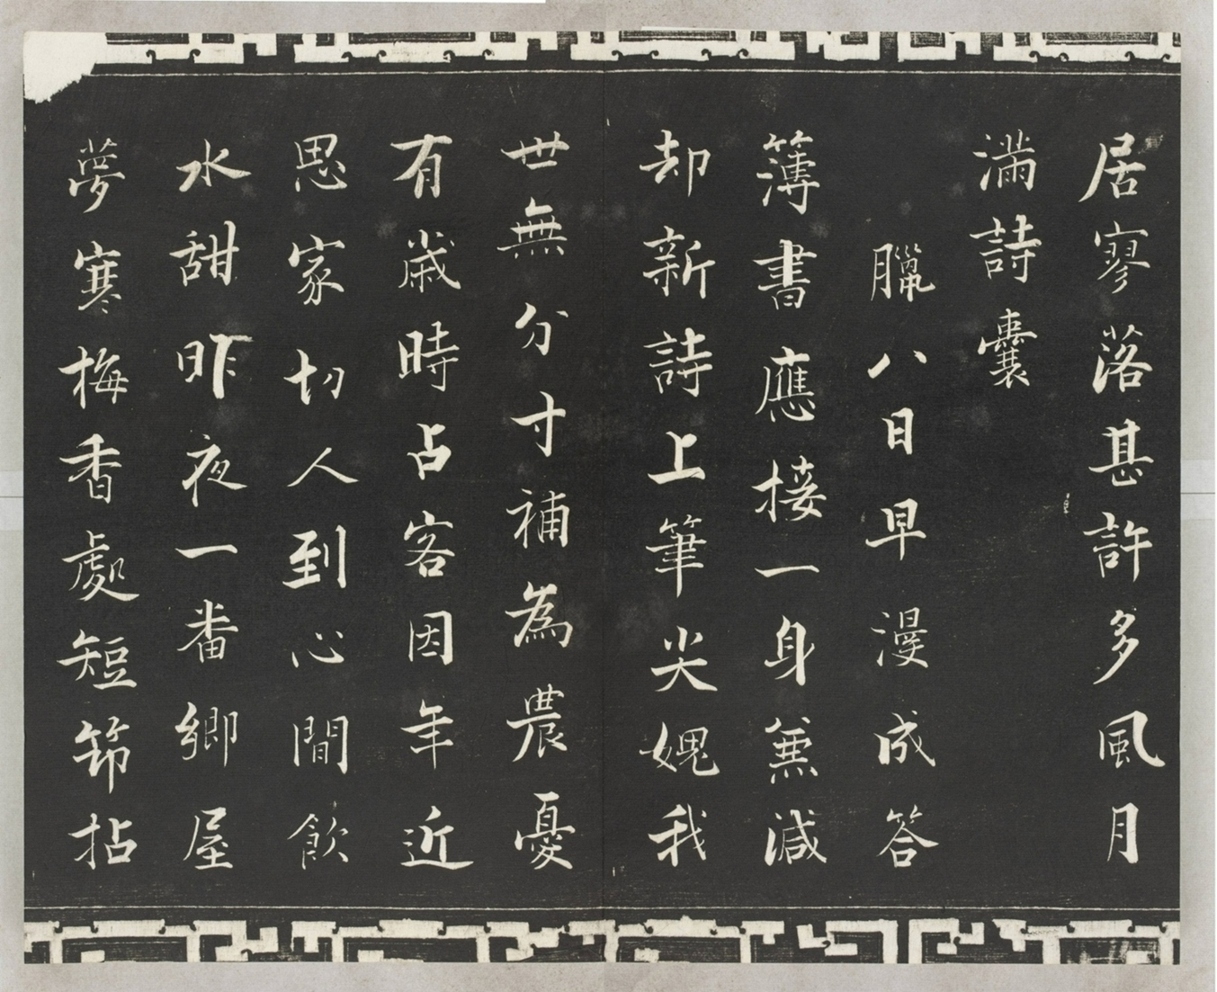 居寥落甚許多風月
滿詩囊
臘八日早漫成答
簿書應接一身兼減
却新詩上筆尖媿我
世無分寸補為農憂
有歲時占客因年近
思家切人到心閒飲
水甜昨夜一番鄉屋
夢寒梅香處短笻拈